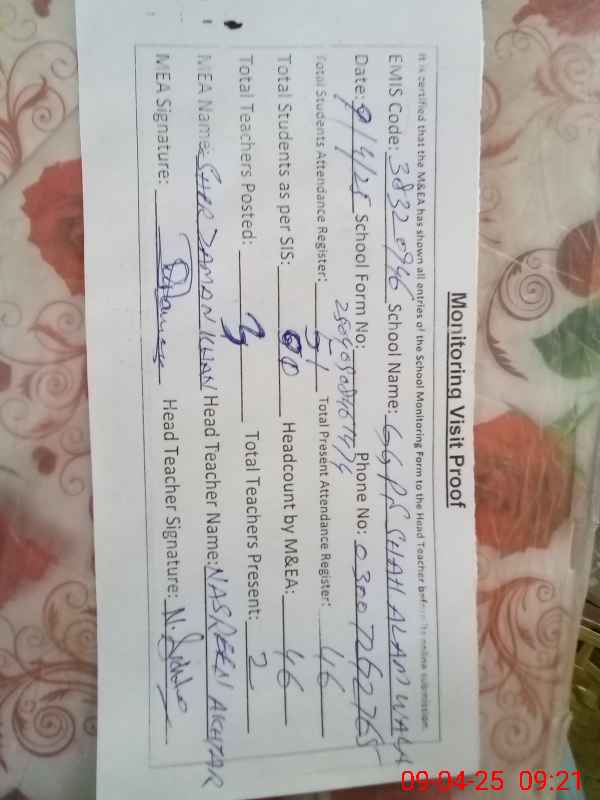 Monitoring Visit Proof
It is certified that the M&EA has shown all entries of the School Monitoring Form to the Head Teacher before its online submission.
EMIS Code: 38320946 School Name: GGPS SHAH ALAM WALA
Date: 9/4/25 School Form No: Phone No: 03007262765
Total Students Attendance Register: 51 Total Present Attendance Register: 46
Total Students as per SIS: Headcount by M&EA: 46
Total Teachers Posted: 3 Total Teachers Present: 2
MEA Name: SHER ZAMAN KHAN Head Teacher Name: NASREEN AKHTAR
MEA Signature: Head Teacher Signature:
09-04-25 09:21